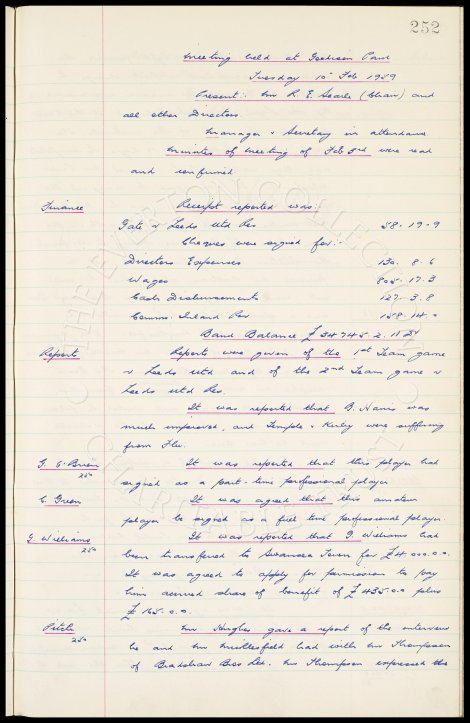 252
Meeting held at Goodison Park
Tuesday 10th Feb 1959
Present:- Mr R. E. Searle (Chair) and
all other Directors.
Manager & Secretary in attendance
Minutes of meeting of Feb 3rd were read
and confirmed
Finance Receipt reported was:
Gate v Leeds Utd Res 58-19-9
Cheques were signed for:-
Directors Expenses 130. 8.6
Wages 805-17.3
Cash Disbursements 127-3.8
Comms. Inland Rev 158.14.0
Bank Balance £34745.2.11
Reports Reports were given of the 1st Team game
v Leeds Utd and of the 2nd Team game v
Leeds Utd Res.
It was reported that B. Harris was
much improved, and Temple & Kirby were suffering
from Flu.
G. O'Brien It was reported that this player had
250
signed as a part-time professional player
C. Green It was agreed that this amateur
player be signed as a full time professional player.
G Williams It was reported that G. Williams had
250
been transferred to Swansea Town for £4000.0.0.
It was agreed to apply for permission to pay
him accrued share of benefit of £435.0.0 plus
£165.0.0.
Pitch Mr Hughes gave a report of the interview
250
he and Mr Micklesfield had with Mr Thompson
of Bradshaw Bros Ltd. Mr Thompson expressed the
THE EVERTON COLLECTION
CHARITABLE TRUST